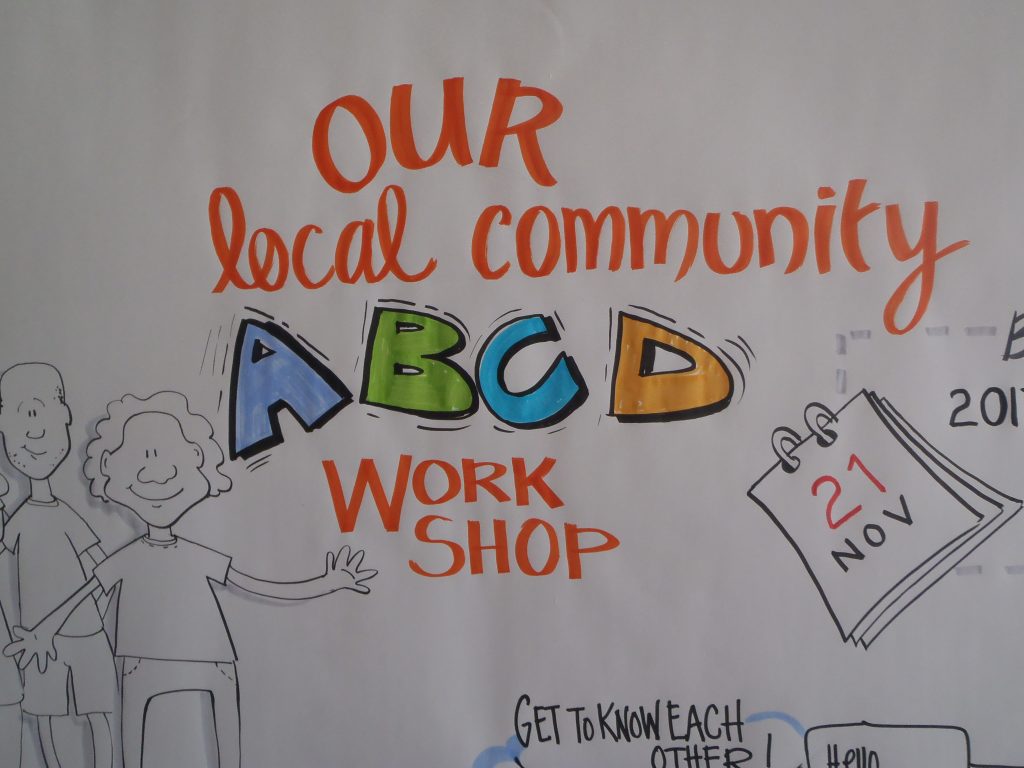 OUR
local community
ABCD
WORK
SHOP
201
21
NOV
GET TO KNOW EACH
OTHER!
Hello